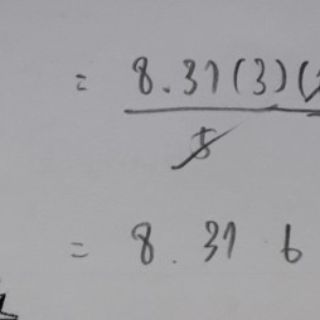 = 8.31 (3) (
5
= 8.31 6